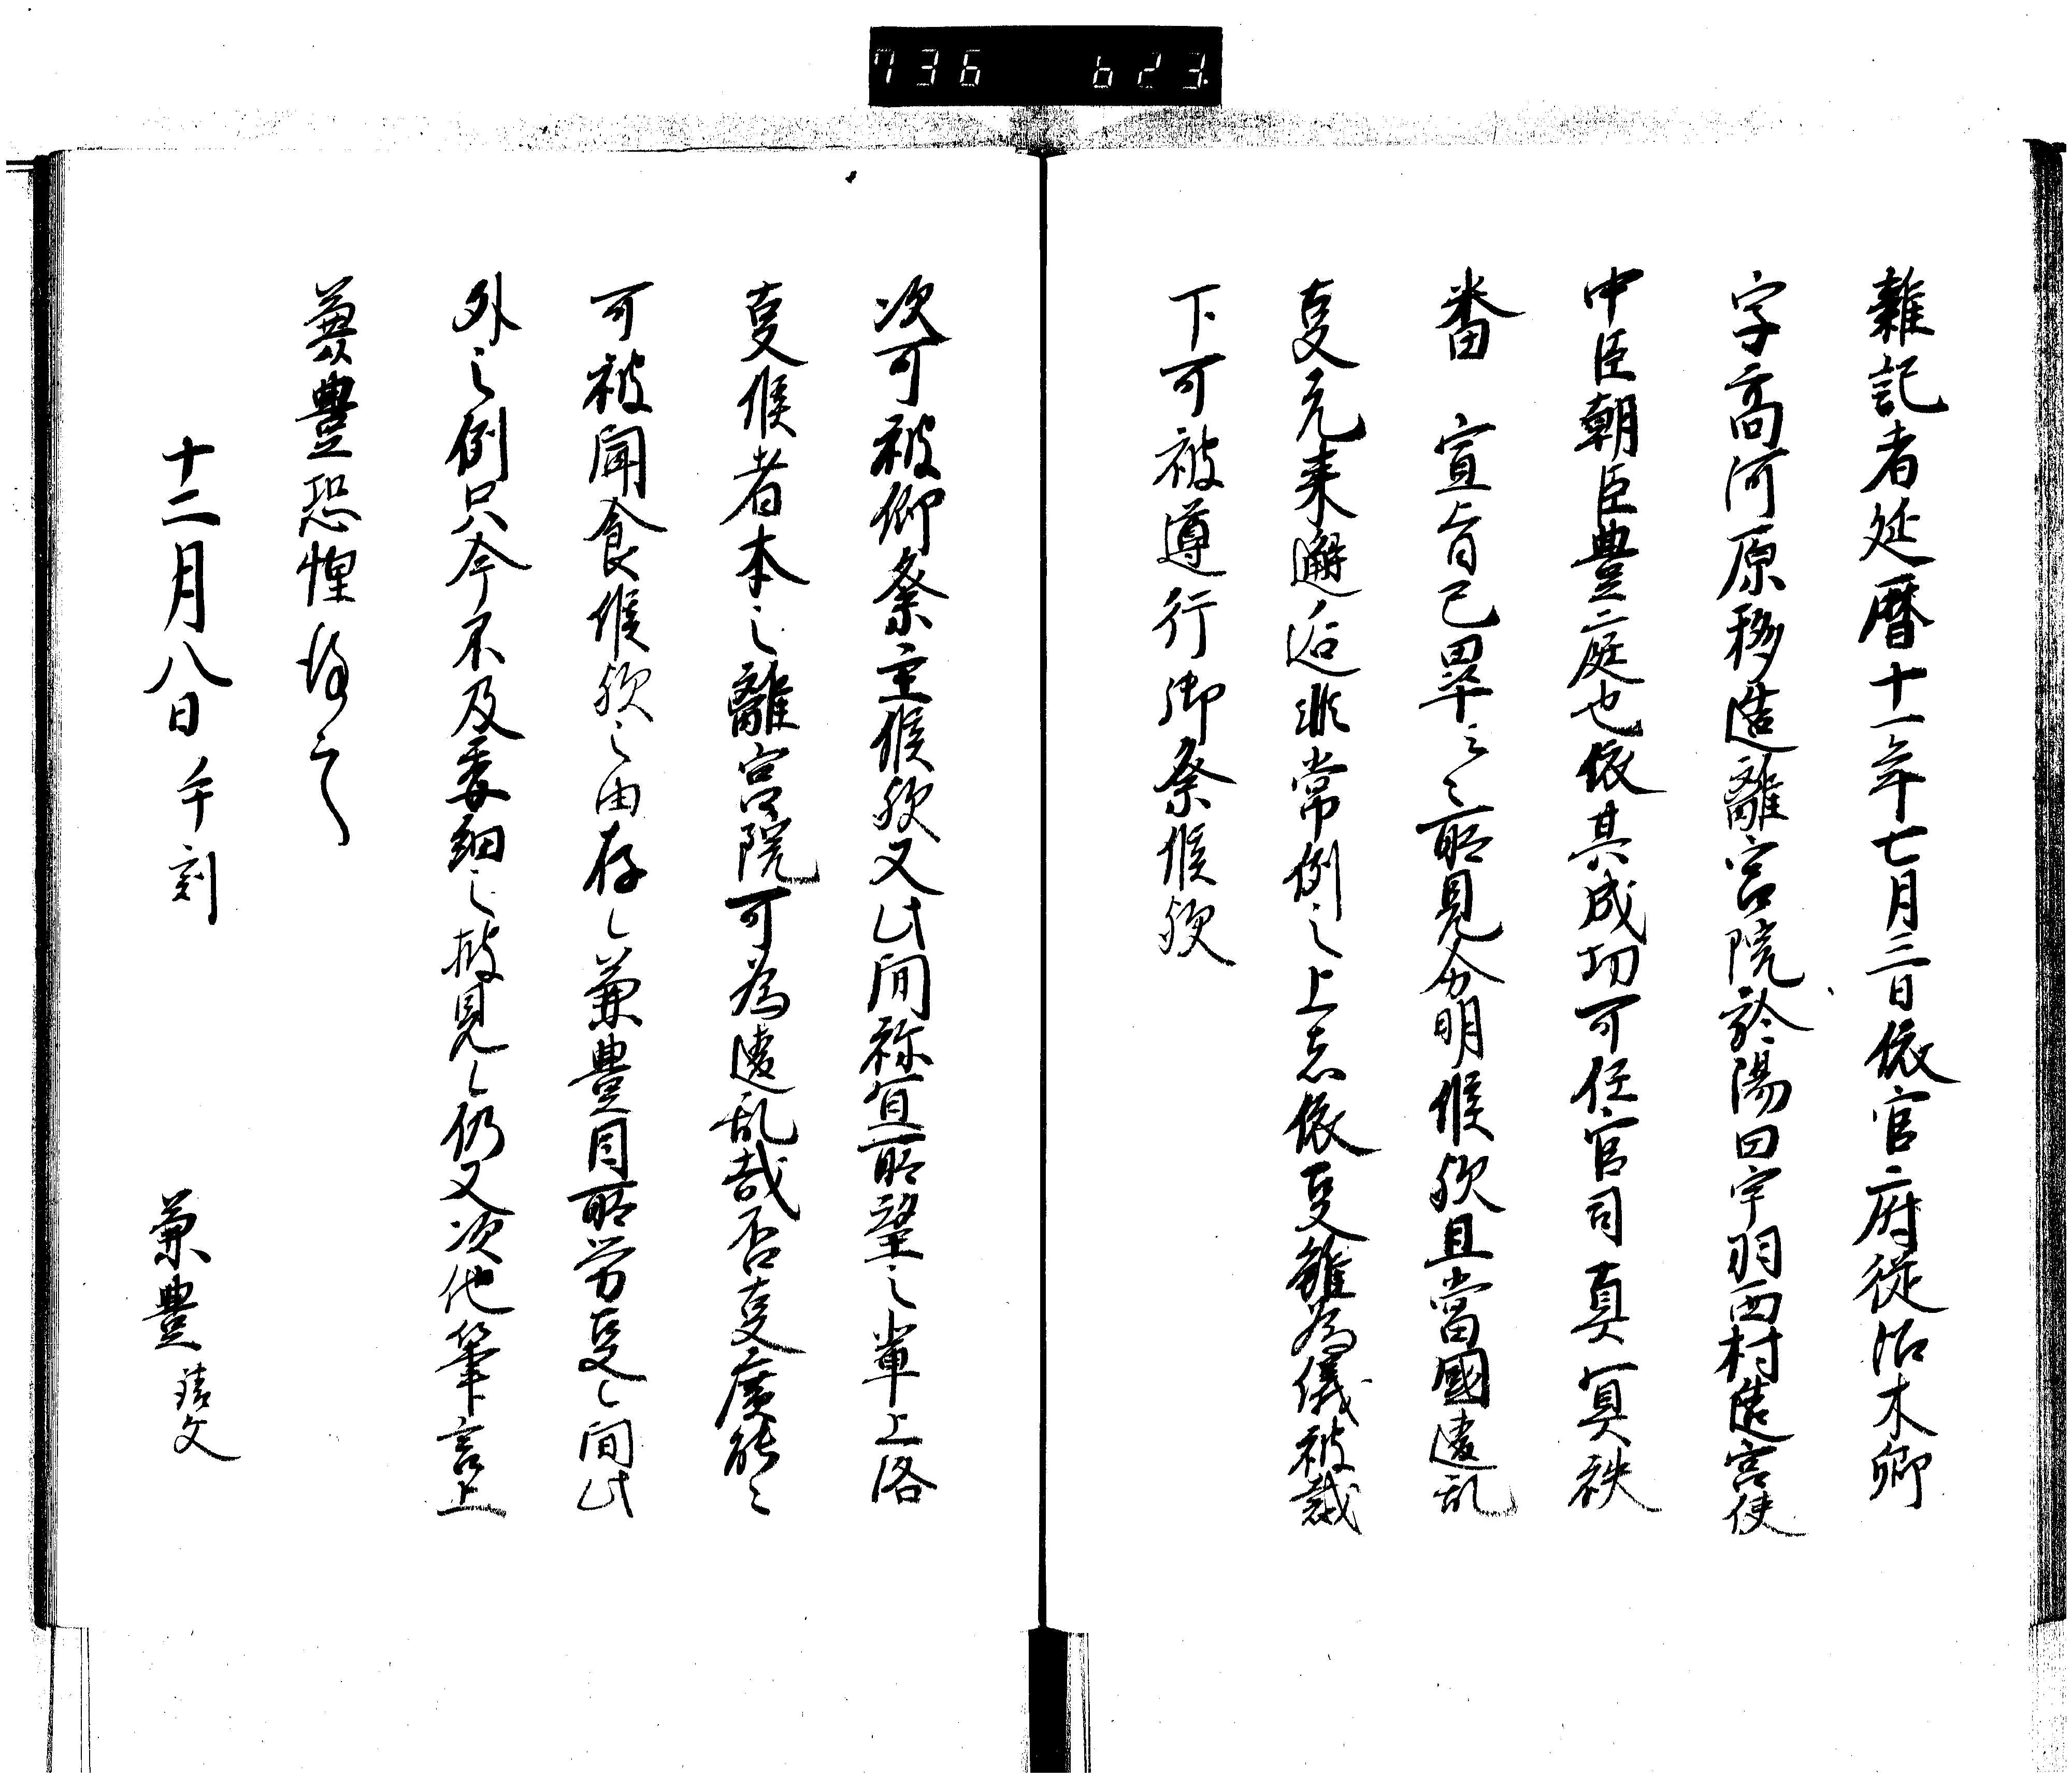 736 623
雜記者延暦十一年七月三日依官府從沼木郷
字高河原移造離宮院於陽田宇羽西村造宮使
中臣朝臣豊庭也依其成功可任官司真冥秩
番 宣旨已畢云々所見分明候欤且當國違乱
㕝元来邂逅非常例之上忘依㕝雖為儀被裁
下可被遵行御祭候欤
次可被仰祭主候欤又此間祢宜所望之輩上洛
㕝候者本之離宮院可為違乱哉否㕝廣能々
可被聞食候欤之由存候兼豊目所労㕝候間此
外之例只今不及委細之披見候仍又次他筆言上
兼豊恐惶謹言
十二月八日午刻 兼豊請文